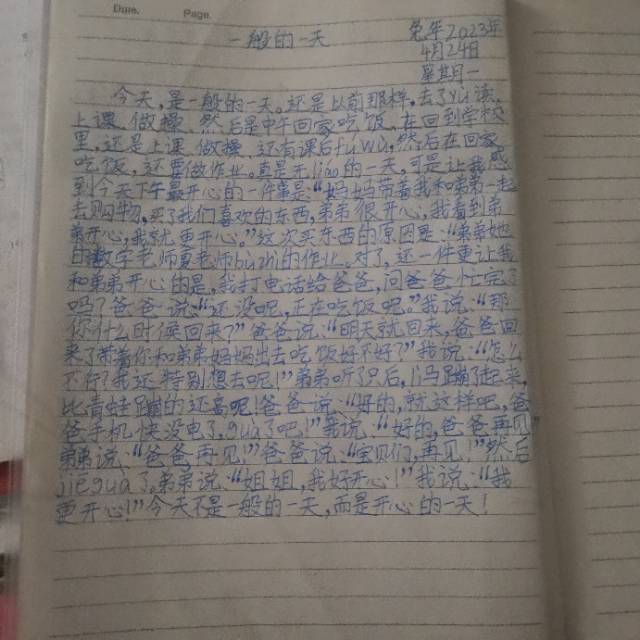 Date. Page.
一般的一天 兔年2023年
4月24日
星期一
今天,是一般的一天,还是以前那样,去了以后读
上课,做操,然后是中午回家吃饭,在回到学校
里,还是上课,做操,还有课后fuwu,然后在回家
吃饭,还要做作业。真是无liao的一天,可是让我感
到今天下午最开心的一件事是“妈妈带着我和弟弟一起
去购物,买了我们喜欢的东西,弟弟很开心,我看到弟
弟开心,我就更开心。”这次买东西的原因是,“弟弟他
的数学老师夏老师bu的作业,对了,还一件更让我
和弟弟开心的是,我打电话给爸爸,问爸爸
吗?爸爸说:“还没呢,正在吃饭呢”我说:“那
你什么时侯回来?”爸爸说:“明天就回来,爸爸回
来了带着你和弟弟妈妈出去吃饭好不好?”我说:“怎么
了行?我还特别想去呢!”弟弟听了以后,马上蹦了起来,
比青蛙蹦的还高呢!爸爸说:“好的,就这样吧,爸
爸手机快没电了,gua了吧!”我说:“好的,爸爸再见
弟弟说,“爸爸,再见!”爸爸说,“宝贝们,再见!”然后
jiegua了,弟弟说,“姐姐,我好开心!”我说,“我
更开心!”今天不是一般的一天,而是开心的一天!